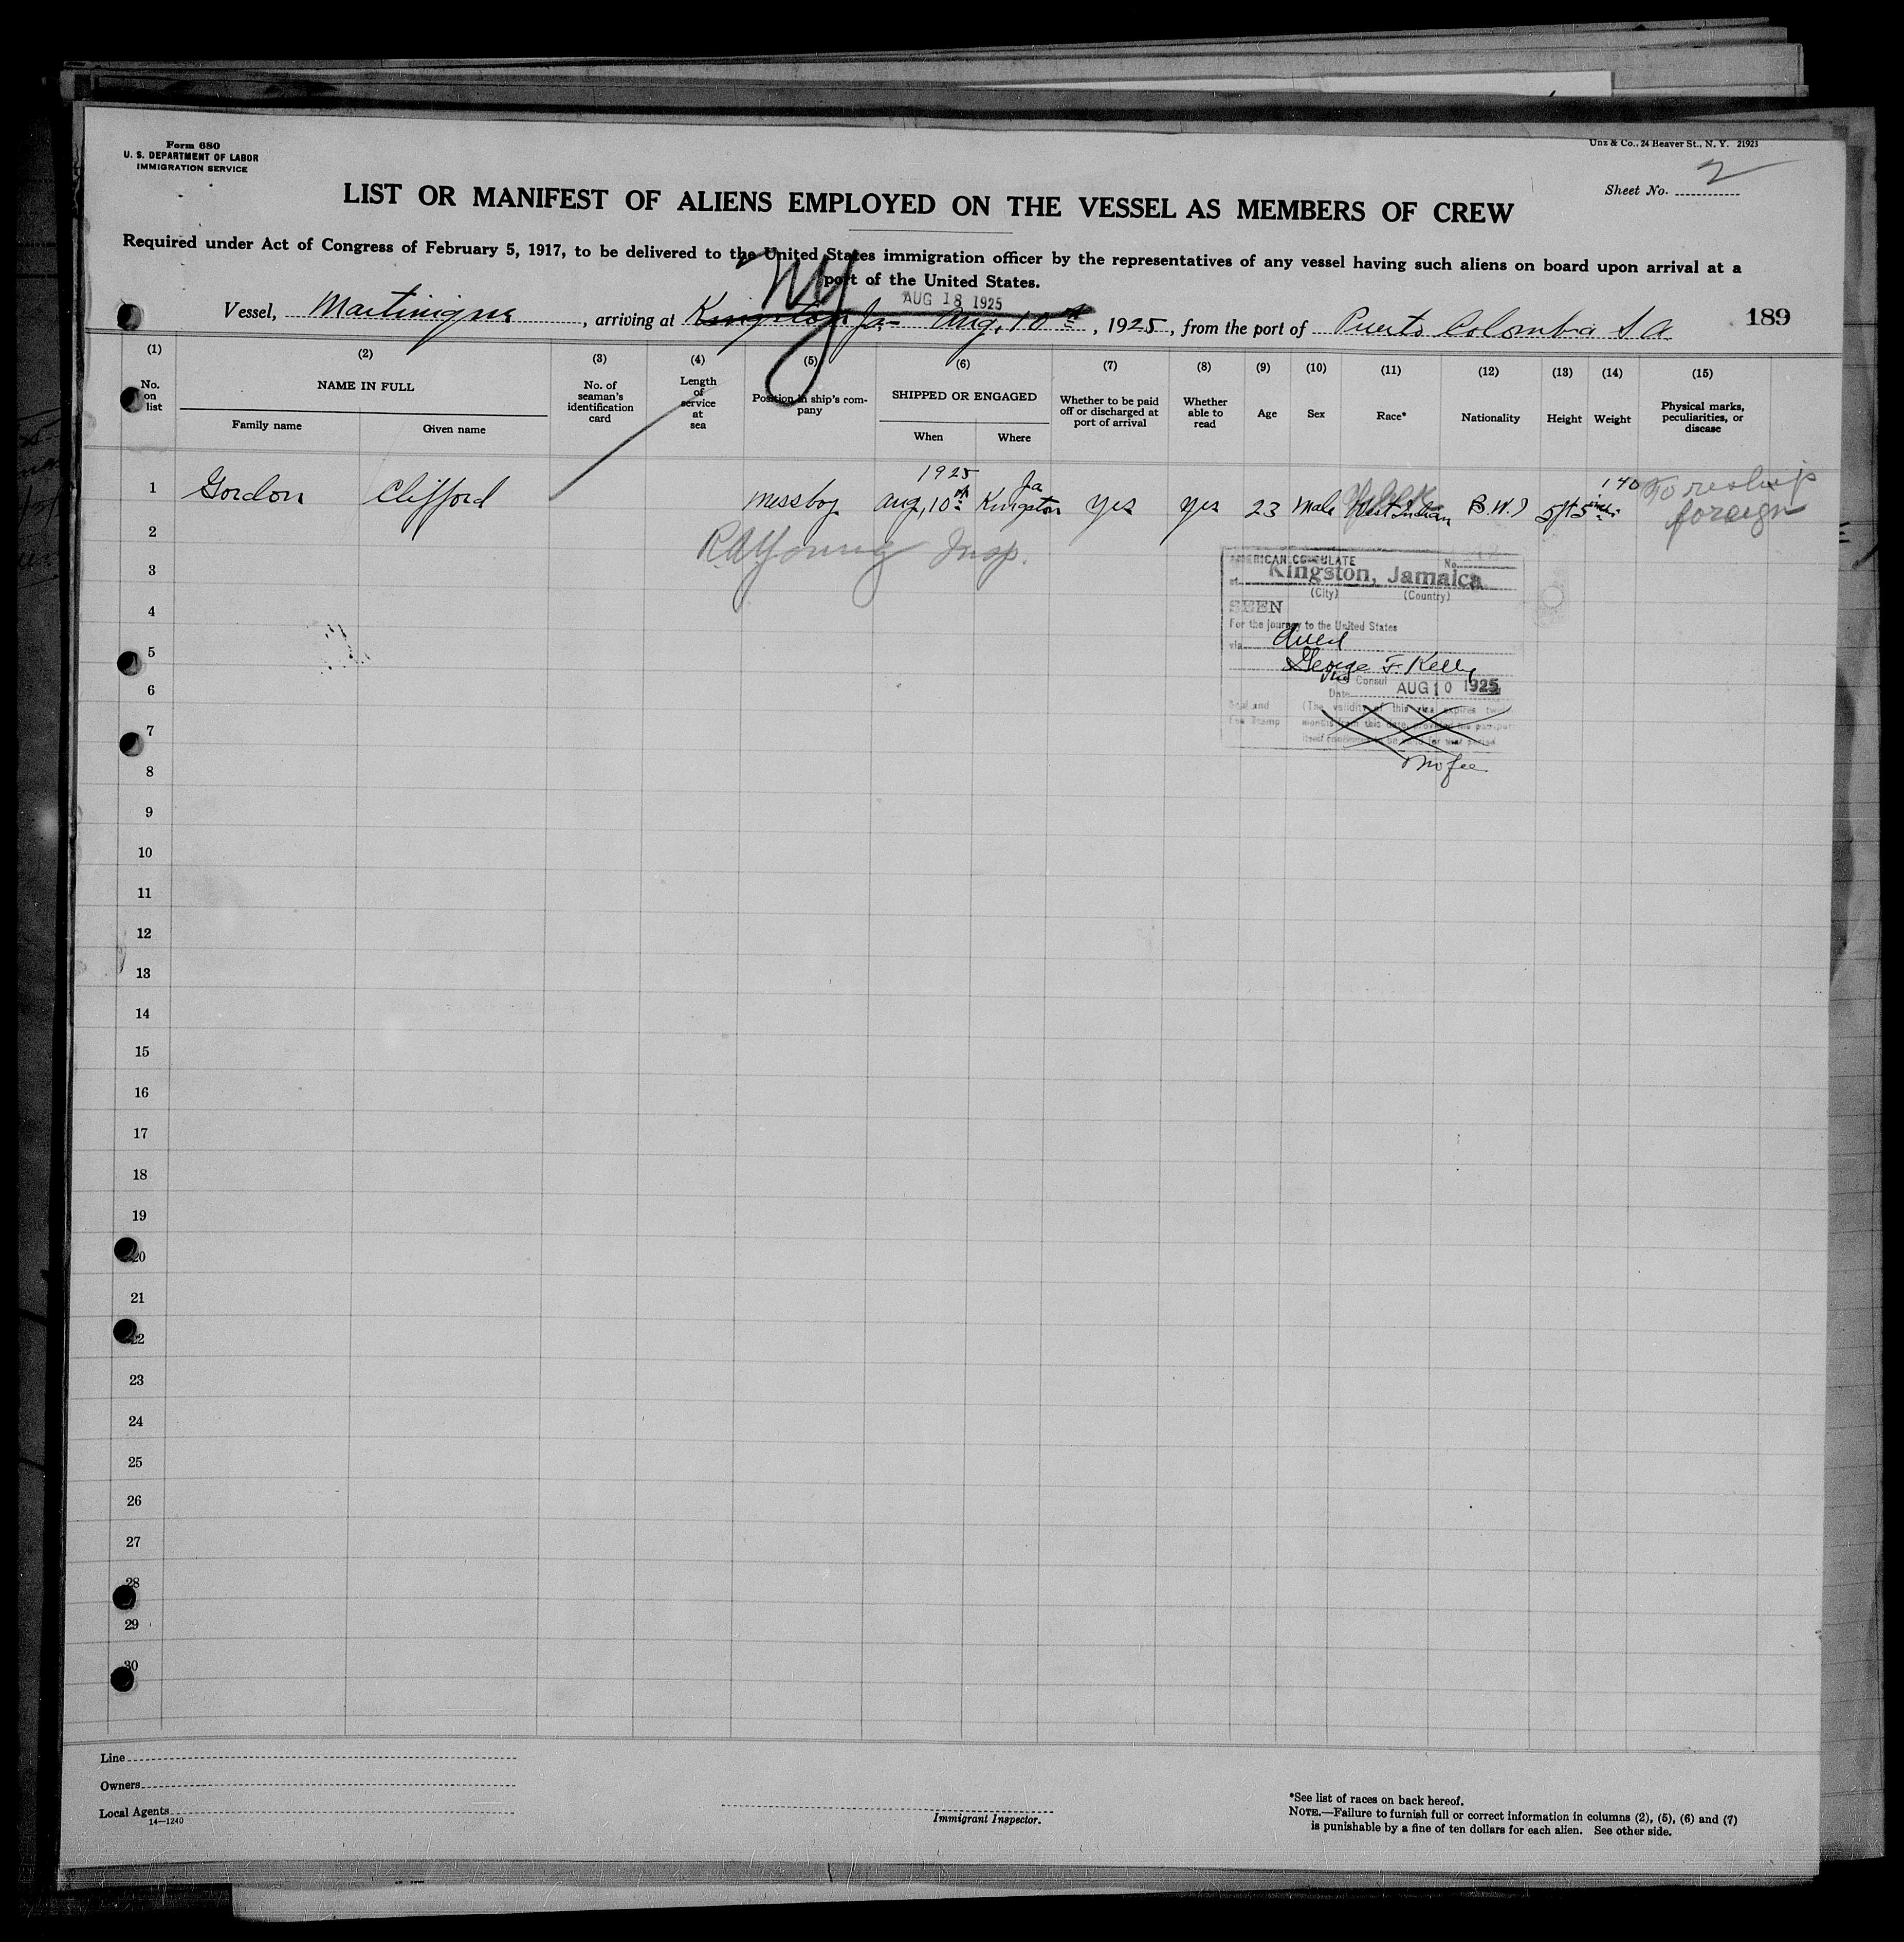 Form 680
U. S. DEPARTMENT OF LABOR
IMMIGRATION SERVICE
Unz & Co., 24 Beaver St., N. Y. 21923
Sheet No. 2
LIST OR MANIFEST OF ALIENS EMPLOYED ON THE VESSEL AS MEMBERS OF CREW
Required under Act of Congress of February 5, 1917, to be delivered to the United States immigration officer by the representatives of any vessel having such aliens on board upon arrival at a
port of the United States.
NY
AUG 18 1925
Vessel, Martinique, arriving at Kingston Ja Aug, 10th, 1925, from the port of Puerto Colombia S A
189
(1) (2) (3) (4) (5) (6) (7) (8) (9) (10) (11) (12) (13) (14) (15)
No. on list
NAME IN FULL
Family name
Given name
No. of seaman's identification card
Length of service at sea
Position in ship's company
SHIPPED OR ENGAGED
When
Where
Whether to be paid off or discharged at port of arrival
Whether able to read
Age
Sex
Race*
Nationality
Height
Weight
Physical marks, peculiarities, or disease
1 Gordon Clifford messboy Aug, 10th 1925 Kingston Ja yes yes 23 Male West Indian B.W.I 5ft 5 inch 140 To reship foreign
2
R A Young Insp.
3
4
5
6
7
8
9
10
11
12
13
14
15
16
17
18
19
20
21
22
23
24
25
26
27
28
29
30
AMERICAN CONSULATE No.
at Kingston, Jamaica
(City) (Country)
SEEN
For the journey to the United States
via
George F. Kelly
Consul
Date AUG 10 1925
Seal and
Fee Stamp
(The validity of this visa expires twelve
months from this date, provided the passport
itself continues to be valid for that period
no fee
Line
Owners
Local Agents
14—1240
Immigrant Inspector.
*See list of races on back hereof.
NOTE.—Failure to furnish full or correct information in columns (2), (5), (6) and (7)
is punishable by a fine of ten dollars for each alien. See other side.